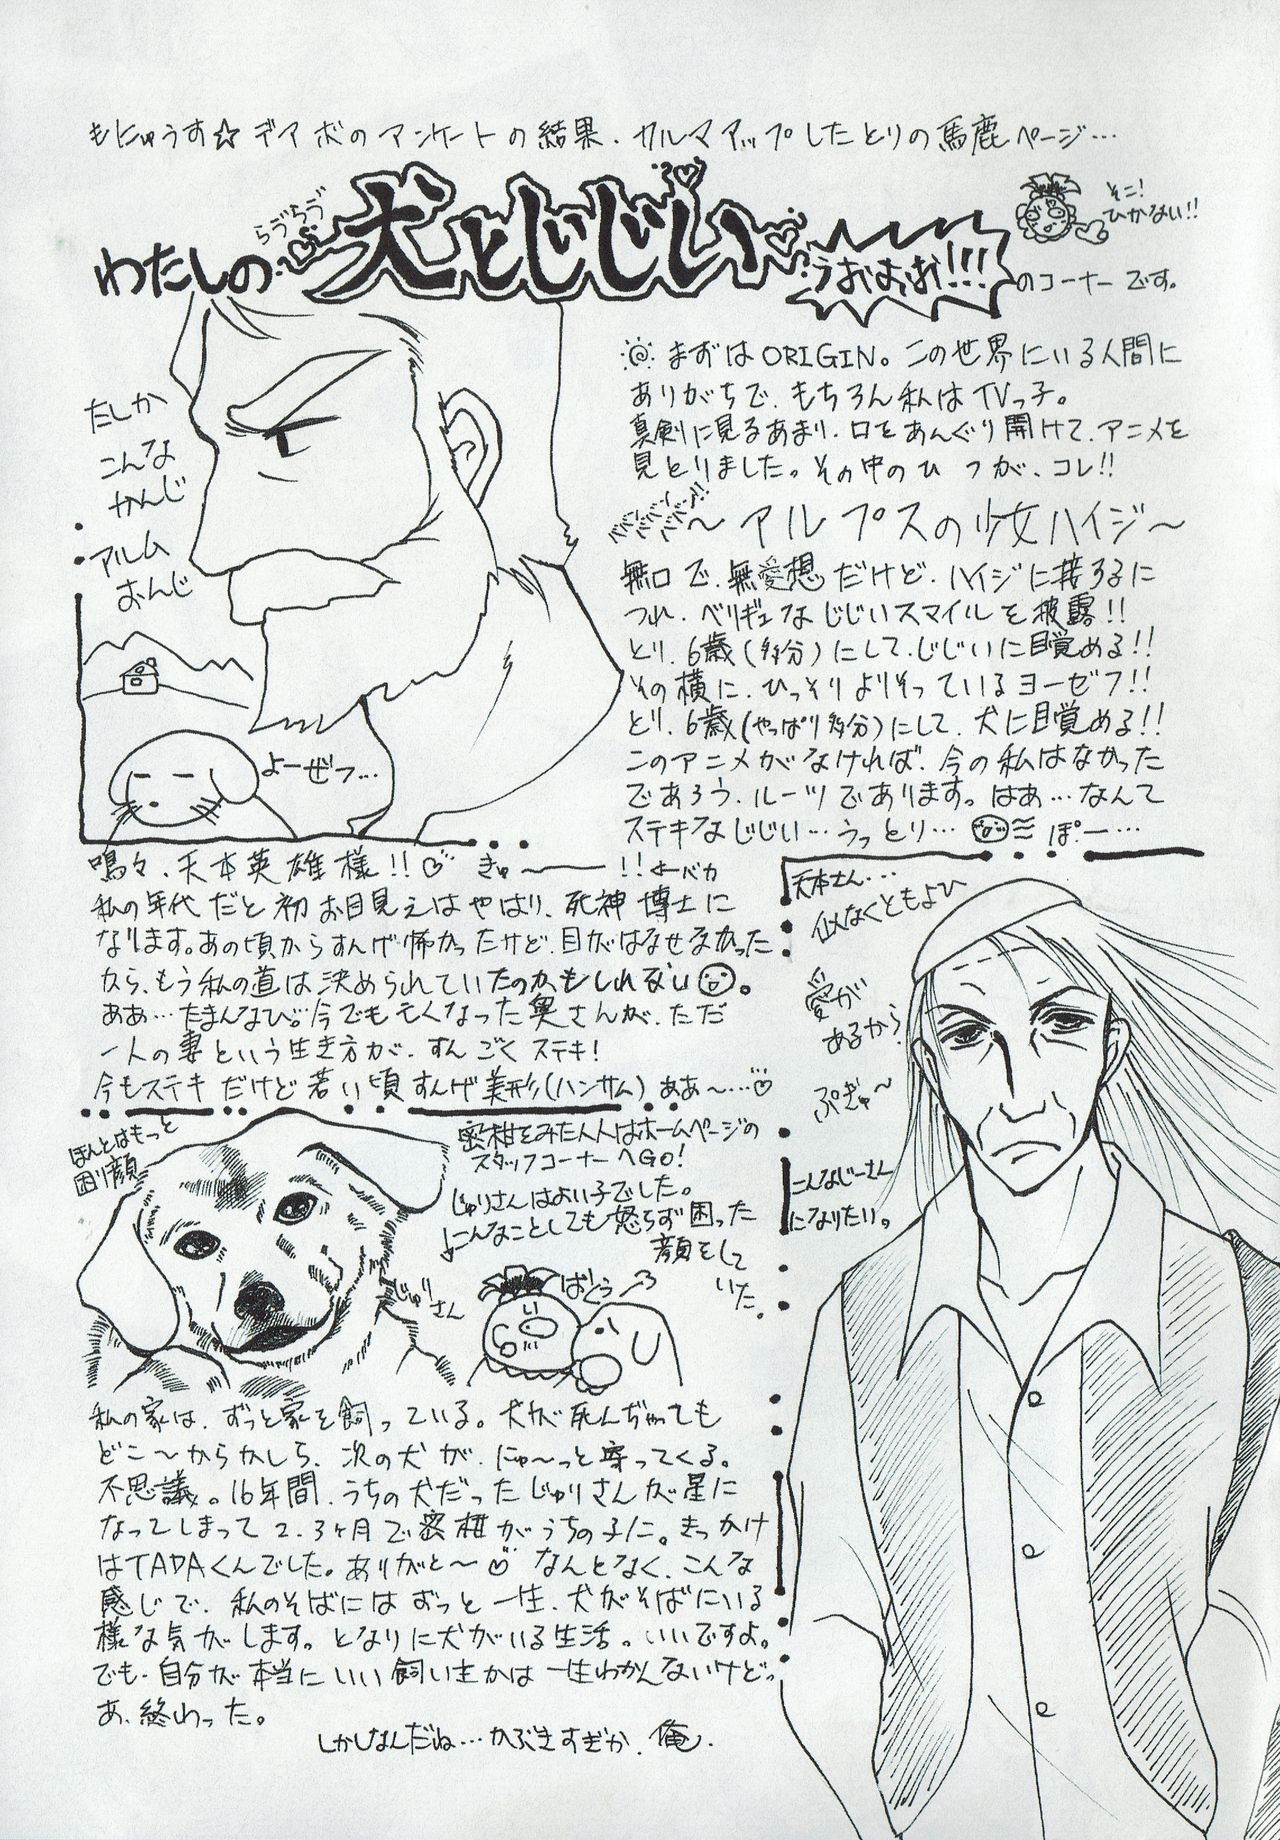 もにゅうす☆デアボのアンケートの結果、カルマアップしたとりの馬鹿ページ…
らぶらぶ
わたしの犬とじじい
うおおお!!!
のコーナーです。
そこ!
ひかない!!
まずはORIGIN。この世界にいる人間に
ありがちで、もちろん私はTVっ子。
真剣に見るあまり、口をあんぐり開けて、アニメを
見とりました。その中のひつが、コレ!!
～アルプスの少女ハイジ～
無口で、無愛想だけど、ハイジに接するに
つれ、ベリギュなじじいスマイルを披露!!
とり、6歳(多分)にして、じじいに目覚める!!
その横に、ひっそりよりそっているヨーゼフ!!
とり、6歳(やっぱり多分)にして、犬に目覚める!!
このアニメがなければ、今の私はなかった
であろう、ルーツであります。はあ…なんて
ステキなじじい…うっとり… ぽー…
たしか
こんな
かんじ
アルム
おんじ
よーぜフ…
鳴々、天本英雄様!!♡ きゅ～――!!←バカ
私の年代だと初お目見えはやはり、死神博士に
なります。あの頃からすんげ怖かったけど、目がはなせなかった
から、もう私の道は決められていたのかもしれない。
ああ…たまんなひ。今でも亡くなった奥さんが、ただ
一人の妻という生き方が、すんごくステキ!
今もステキだけど若い頃すんげ美形(ハンサム)ああ～…♡
天本さん…
似なくともよひ
愛が
あるから
ぷぎゅ～
こんなじーさん
になりたい。
ほんとはもっと
困り顔
密柑をみた人はホームページの
スタッフコーナーへGO!
じゅりさんはよい子でした。
こんなことしても怒らず困った
顔をして
いた。
じゅりさん
ばくぅ
私の家は、ずっと家を飼っている。犬が死んぢゃっても
どこ～からかしら、次の犬が、にゅ～っと寄ってくる。
不思議。16年間、うちの犬だったじゅりさんが星に
なってしまって2、3ヶ月で密柑がうちの子に。きっかけ
はTADAくんでした。ありがと～♡ なんとなく、こんな
感じで、私のそばにはずっと一生、犬がそばにいる
様な気がします。となりに犬がいる生活。いいですよ。
でも、自分が本当にいい飼い主かは一生わかんないけどっ
あ、終わった。
しかしなんだね…かぶきすぎか、俺。